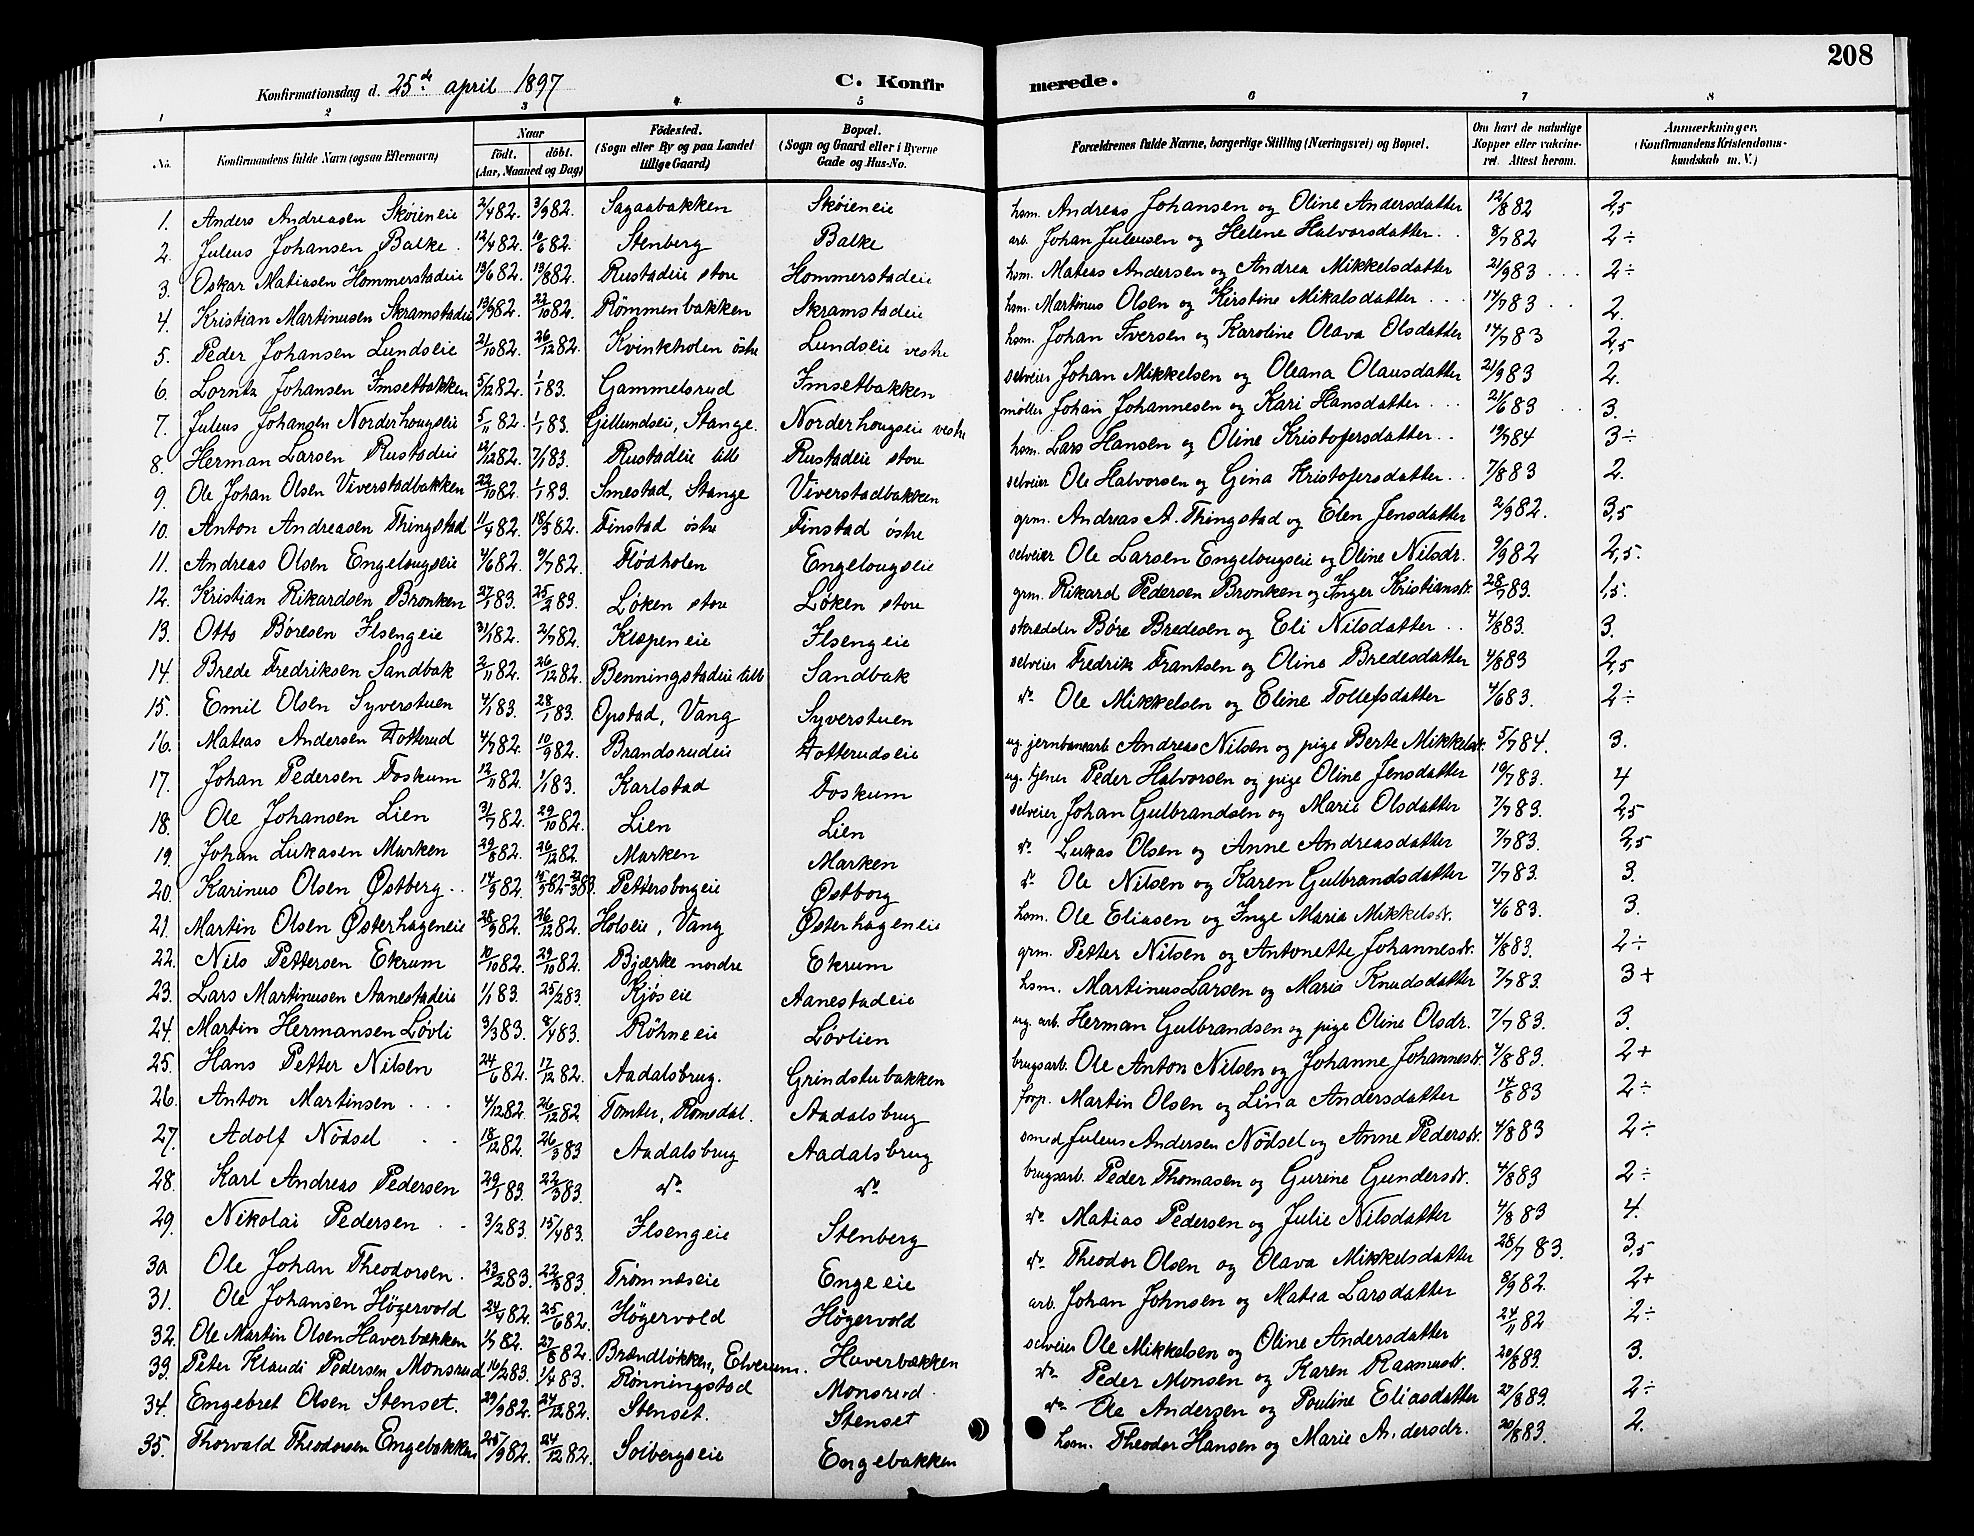 208
Konfirmationsdag d. 25de april 1897 C. Konfirmerede.
1 2 3 4 5 6 7 8
No. Konfirmandens fulde Navn (ogsaa Efternavn) Naar født. døbt. (Aar, Maaned og Dag) Fødested. (Sogn eller By og paa Landet tillige Gaard) Bopæl. (Sogn og Gaard eller i Byerne Gade og Hus-No. Forældrenes fulde Navne, borgerlige Stilling (Næringsvei) og Bopæl. Om havt de naturlige Kopper eller vaccineret. Attest herom. Anmærkninger. (Konfirmandens Kristendomskundskab m. V.)
1. Anders Andreasen Skøieneie 2/4 82. 3/9 82. Sagaabakken Skøieneie hsm. Andreas Johansen og Oline Andersdatter 12/8 82 2,5
2. Julius Johansen Balke. 12/4 82. 10/6 82. Stenberg Balke arb. Johan Juliusen og Helene Halvorsdatter. 8/7 82 2÷
3. Oskar Matiasen Hommerstadeie 19/6 82. 13/8 82. Rustadeie store Hommerstadeie hsm. Mateas Andersen og Andrea Mikkelsdatter 21/9 83 2÷
4. Kristian Martinusen Skramstadeie 13/9 82. 22/10 82. Römmenbakken Skramstadeie hsm. Martinus Olsen og Kirstine Mikalsdatter 14/7 83 2.
5. Peder Johansen Lundseie 21/10 82. 26/12 82. Kvinkholen östre Lundseie vestre hsm. Johan Iversen og Karoline Olava Olsdatter 14/7 83 2,5
6. Lorntz Johansen Imsetbakken 5/12 82. 1/1 83. Gammelsrud Imsetbakken selveier Johan Mikkelsen og Oleana Olausdatter 21/9 83 2.
7. Julius Johansen Norderhougseie 5/11 82. 1/1 83. Gillundseie, Stange. Norderhougseie vestre møller Johan Johannesen og Kari Hansdatter 21/6 83 3.
8. Herman Larsen Rustadeie 12/12 82. 7/1 83. Rustadeie lille Rustadeie store hsm. Lars Hansen og Oline Kristofersdatter 19/7 84 3÷
9. Ole Johan Olsen Viverstadbakken 22/10 82. 1/1 83. Smestad, Stange Viverstadbakken selveier Ole Halvorsen og Gina Kristofersdatter 7/8 83 2.
10. Anton Andreasen Thingstad 11/4 82. 18/5 82. Finstad östre Finstad östre grm. Andreas A. Thingstad og Elen Jensdatter 2/9 82. 3,5
11. Andreas Olsen Engelougseie 4/6 82. 9/7 82. Flødholen Engelougseie selveier Ole Larsen Engelougseie og Oline Nilsdr. 9/9 82 2,5.
12. Kristian Rikardsen Bronken 27/1 83. 25/2 83. Løken store Løken store grm. Rikard Pedersen Bronken og Inger Kristiansdr. 28/7 83. 1,5.
13. Otto Böresen Ilsengeie 31/1 82. 2/7 82. Kispeneie Ilsengeie skrædder Böre Bredesen og Eli Nilsdatter 4/8 83. 3.
14. Brede Fredriksen Sandbak 2/11 82. 26/12 82. Benningstadeie lille Sandbak selveier Fredrik Frantsen og Oline Bredesdatter 4/8 83 2,5
15. Emil Olsen Syverstuen 4/1 83. 28/1 83. Opstad, Vang Syverstuen do Ole Mikkelsen og Eline Tollefsdatter 4/6 83. 2÷
16. Mateas Andersen Dotterud 4/7 82. 10/9 82. Brandsrudeie Dotterudseie ug. jernbanearb. Andreas Nilsen og pige Berte Mikkelsdr. 5/7 84. 3.
17. Johan Pedersen Foskum 12/11 82. 1/1 83. Karlstad Foskum ug. tjener Peder Halvorsen og pige Oline Jensdatter 19/7 83. 4
18. Ole Johansen Lien 31/7 82. 29/10 82. Lien Lien selveier Johan Gulbrandsen og Marie Olsdatter 7/7 83. 2,5
19. Johan Lukasen Marken 29/8 82. 26/12 82. Marken Marken do Lukas Olsen og Anne Andreasdatter 7/7 83. 3,5
20. Karinus Olsen Østberg 14/9 82. Pettersborgeie Østborg do Ole Nilsen og Karen Gulbrandsdatter 7/7 83. 3.
21. Martin Olsen Østerhageneie 28/9 82. 26/12 82. Holseie, Vang Østerhageneie hsm. Ole Eliasen og Inge Maria Mikkelsdr. 4/6 83. 3.
22. Nils Pettersen Ekrum 10/10 82. 29/10 82. Bjærke nordre Ekrum grm. Petter Nilsen og Antonette Johannesdr. 4/8 83. 2÷
23. Lars Martinusen Aanestadeie 1/1 83. 25/2 83. Kjöseie Aanestadeie hsm. Martinus Larsen og Maris Knudsdatter 7/7 83. 3+
24. Martin Hermansen Løvli 3/3 83. 8/4 83. Röhneeie Løvlien ug. arb. Herman Gulbrandsen og pige Oline Olsdr. 7/7 83. 3.
25. Hans Petter Nilsen 24/6 82. 17/12 82. Aadalsbrug. Grindstubakken brugsarb. Ole Anton Nilsen og Johanne Johannesdr. 4/8 83. 2+
26. Anton Martinsen 4/12 82. 26/12 82. Tomter, Romsdal. Aadalsbrug forp. Martin Olsen og Lina Andersdatter 14/8 83 2÷
27. Adolf Nödsel 18/12 82. 26/3 83 Aadalsbrug Aadalsbrug smed Julius Andersen Nödsel og Anne Pedersdr. 4/8 83 2÷
28. Karl Andreas Pedersen 29/1 83. 22/3 83. do do brugsarb. Peder Thomasen og Gurine Gundersdr. 4/8 83 2÷
29. Nikolai Pedersen 3/2 83. 15/4 83. Ilsengeie Stenberg do Matias Pedersen og Julie Nilsdatter 4/8 83 4.
30 Ole Johan Theodorsen. 23/2 83. 22/3 83. Tromnæseie Engeeie do Theodor Olsen og Olava Mikkelsdatter 28/7 83. 3,5
31. Ole Johansen Högervold 24/4 82. 25/6 82. Högervold Högervold arb. Johan Johnsen og Matea Larsdatter 8/9 82. 2+
32. Ole Martin Olsen Haverbækken 1/7 82. 27/8 82. Brændløkken, Elverum. Haverbækken selveier Ole Mikkelsen og Oline Andersdatter 24/11 82 2÷
33. Peter Klaudi Pedersen Monsrud 10/2 83. 1/4 83. Rönningstad Monsrud. do Peder Monsen og Karen Rasmusdr. 20/8 83. 3.
34. Engebret Olsen Stenset. 29/9 82. 24/12 82. Stenset. Stenset do Ole Andersen og Pouline Eliasdatter 27/8 83. 2÷
35. Thorvald Theodorsen Engebakken 25/9 82. 24/12 82. Solbergseie Engebakken hsm. Theodor Hansen og Marie Andersdr. 20/8 83. 2.